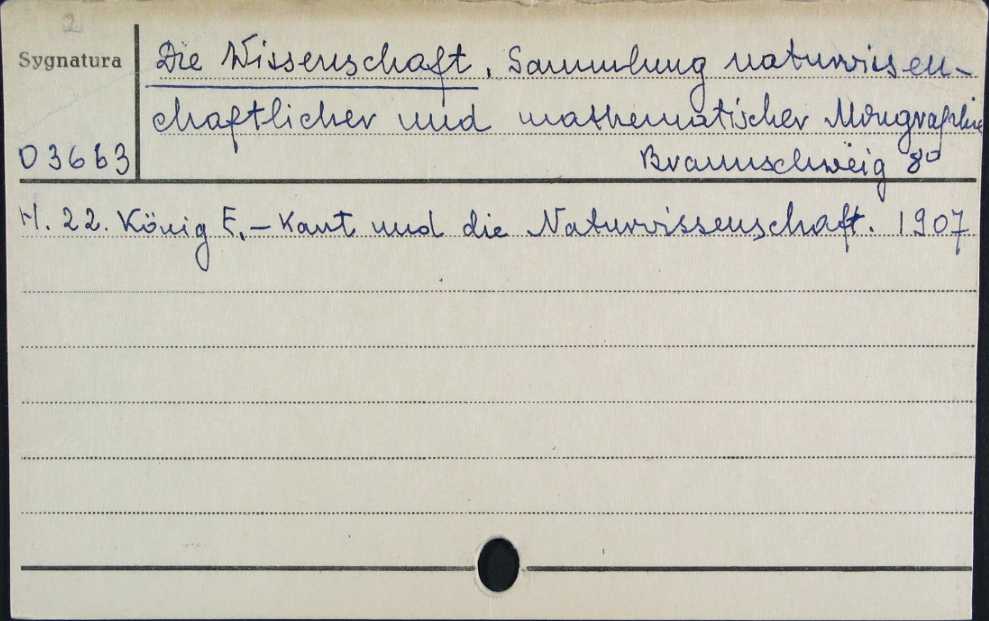 2
Sygnatura
Die Wissenschaft. Sammlung naturwissen-
chaftlicher und mathematischer Monographie
D 3663
Braunschweig 8°
H. 22. König E. – Kant und die Naturwissenschaft. 1907